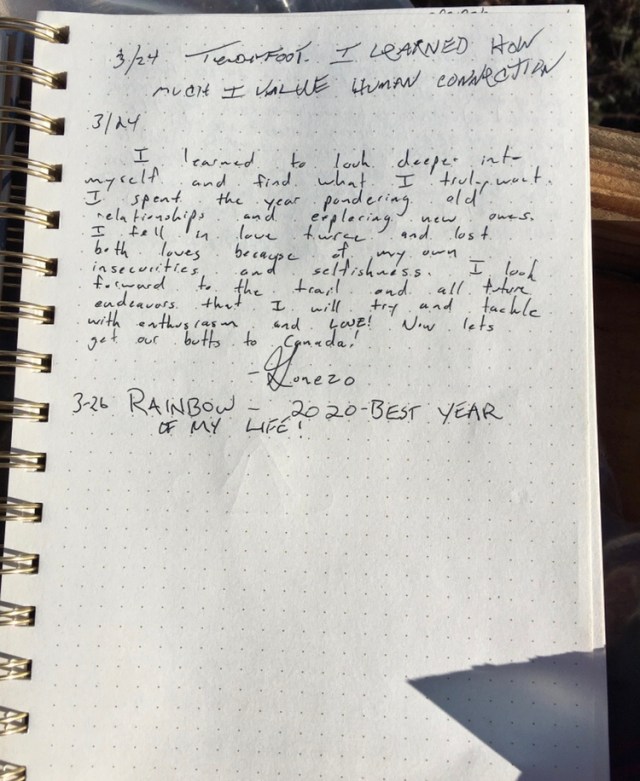 3/24 Tenderfoot. I LEARNED HOW
MUCH I VALUE HUMAN CONNECTION
3/24
I learned to look deeper into
myself and find what I truly want.
I spent the year pondering old
relationships and exploring new ones.
I fell in love twice and lost
both loves because of my own
insecurities and selfishness. I look
forward to the trail and all future
endeavors that I will try and tackle
with enthusiasm and LOVE! Now lets
get our butts to Canada!
3-26 RAINBOW - 2020-BEST YEAR
OF MY LIFE!